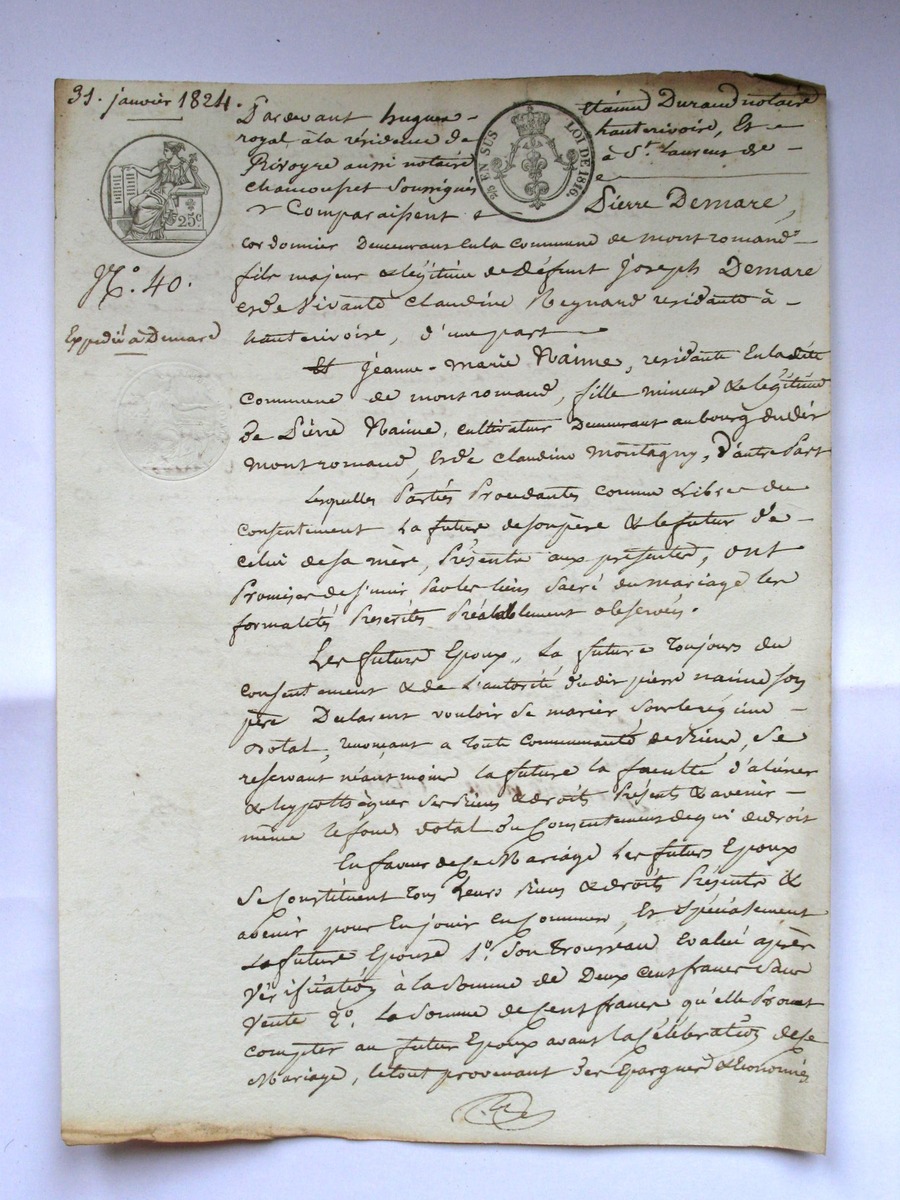 31. janvier 1824.
Pardevant hugues- Etienne Durand notaire
royal à la résidence de hauterivoire, Et
Rivoyre aussi notaire à St. Laurent de
25 EN SUS LOI DE 1816.
Chamousset Soussignés
Comparaissent Pierre Demare,
25c
N.o 40.
Expedié à Demare
cordonnier Demeurant en la commune de montromand
fils majeur & légitime de défunt Joseph Demare
et de vivante Claudine Reynard résidante à
hauterivoire, d'une part
Et Jeanne-Marie Naime, residante en la dite
Commune de montromand, fille mineure & légitime
De Pierre Naime, cultivateur Demeurant au bourg dudit
montromand, et de Claudine Montagny, D'autre Part
Lesquelles Parties Procedantes comme Libres du
consentement La future de son père & le futur de
celui de sa mère, Présents aux présentes, ont
Promises de s'unir Par les liens Sacré du mariage les
formalités Prescrites Préalablement observées.
Les future Epoux, La future toujours du
consentement & de L'autorité dudit pierre naime son
père Declarent vouloir se marier sous le régime
Dotal, renonçant a toute communauté de Biens, Se
reservant néantmoins la future la faculté d'aliéner
& hypothèquer ses Biens & droits Présents & avenir
même le fond dotal du Consentement de qui de droit
En faveur de ce Mariage Les futurs Epoux
Se Constituent tous Leurs Biens & droits Présents &
avenir pour En jouir en Commun, Et Spécialement
La future Epouse 1o. Son Trousseau Evalué après
Vérification à la Somme de Deux cent francs Sans
Vente 2o. La Somme de Cent francs qu'elle Promet
compter au futur Epoux avant la Célébration de ce
Mariage, le tout provenant de ses Epargnes & Economies